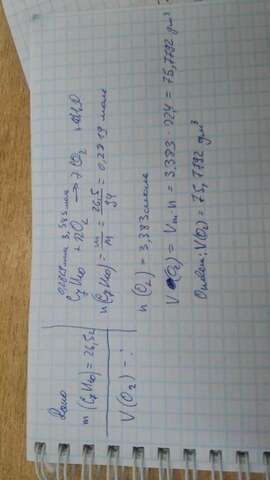 Дано
m (C₇H₁₆) = 26,5г
V (O₂) = ?
0,2819 моль 3,383 моль
C₇H₁₆ + 12O₂ → 7CO₂ + 8H₂O
n (C₇H₁₆) = m/M = 26,5/94 = 0,2819 моль
n (O₂) = 3,383 моль
V (O₂) = Vm·n = 3,383 · 22,4 = 75,7792 дм³
Ответ: V(O₂) = 75,7792 дм³